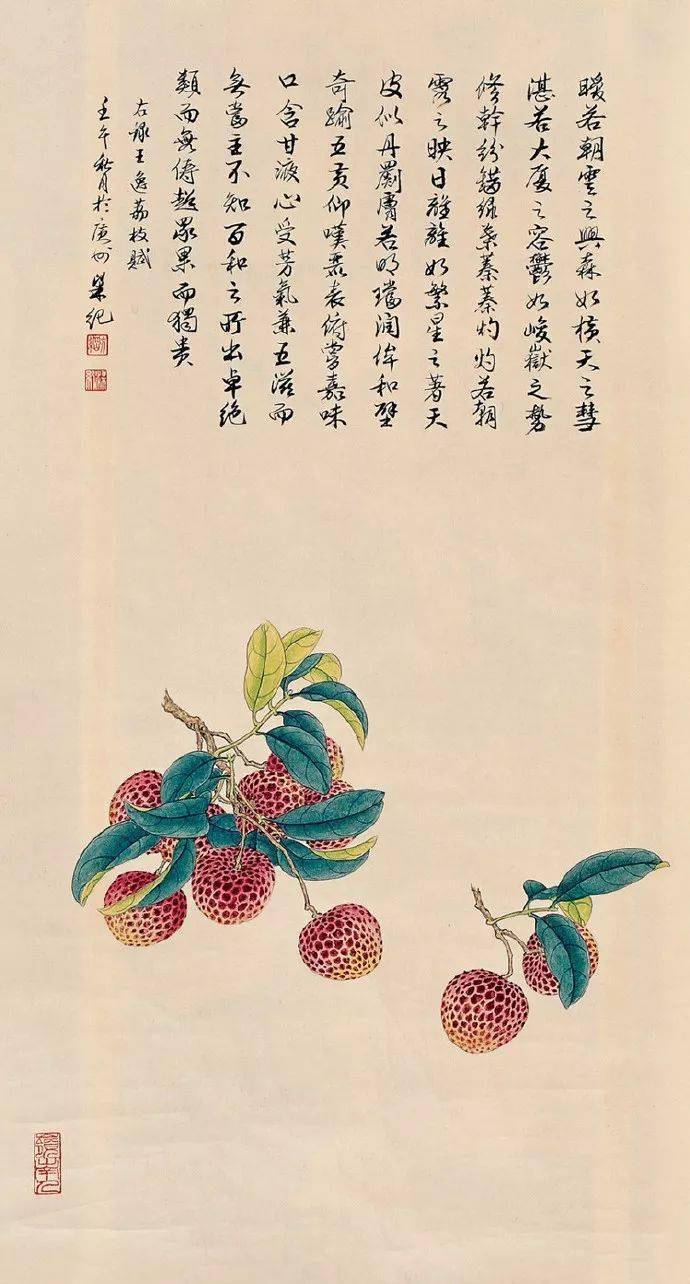 曖若朝雲之興森如橫天之彗
湛若大廈之容鬱如峻嶽之勢
修幹紛錯綠葉蓁蓁灼灼若朝
霞之映日離離如繁星之著天
皮似丹罽膚若明璫潤侔和璧
奇踰五黃仰嘆麗表俯嘗嘉味
口含甘液心受芳氣兼五滋而
無當主不知百和之所出卓絕
類而無儔超眾果而獨貴
右錄王逸荔枝賦
壬午秋月於廣州梁紀